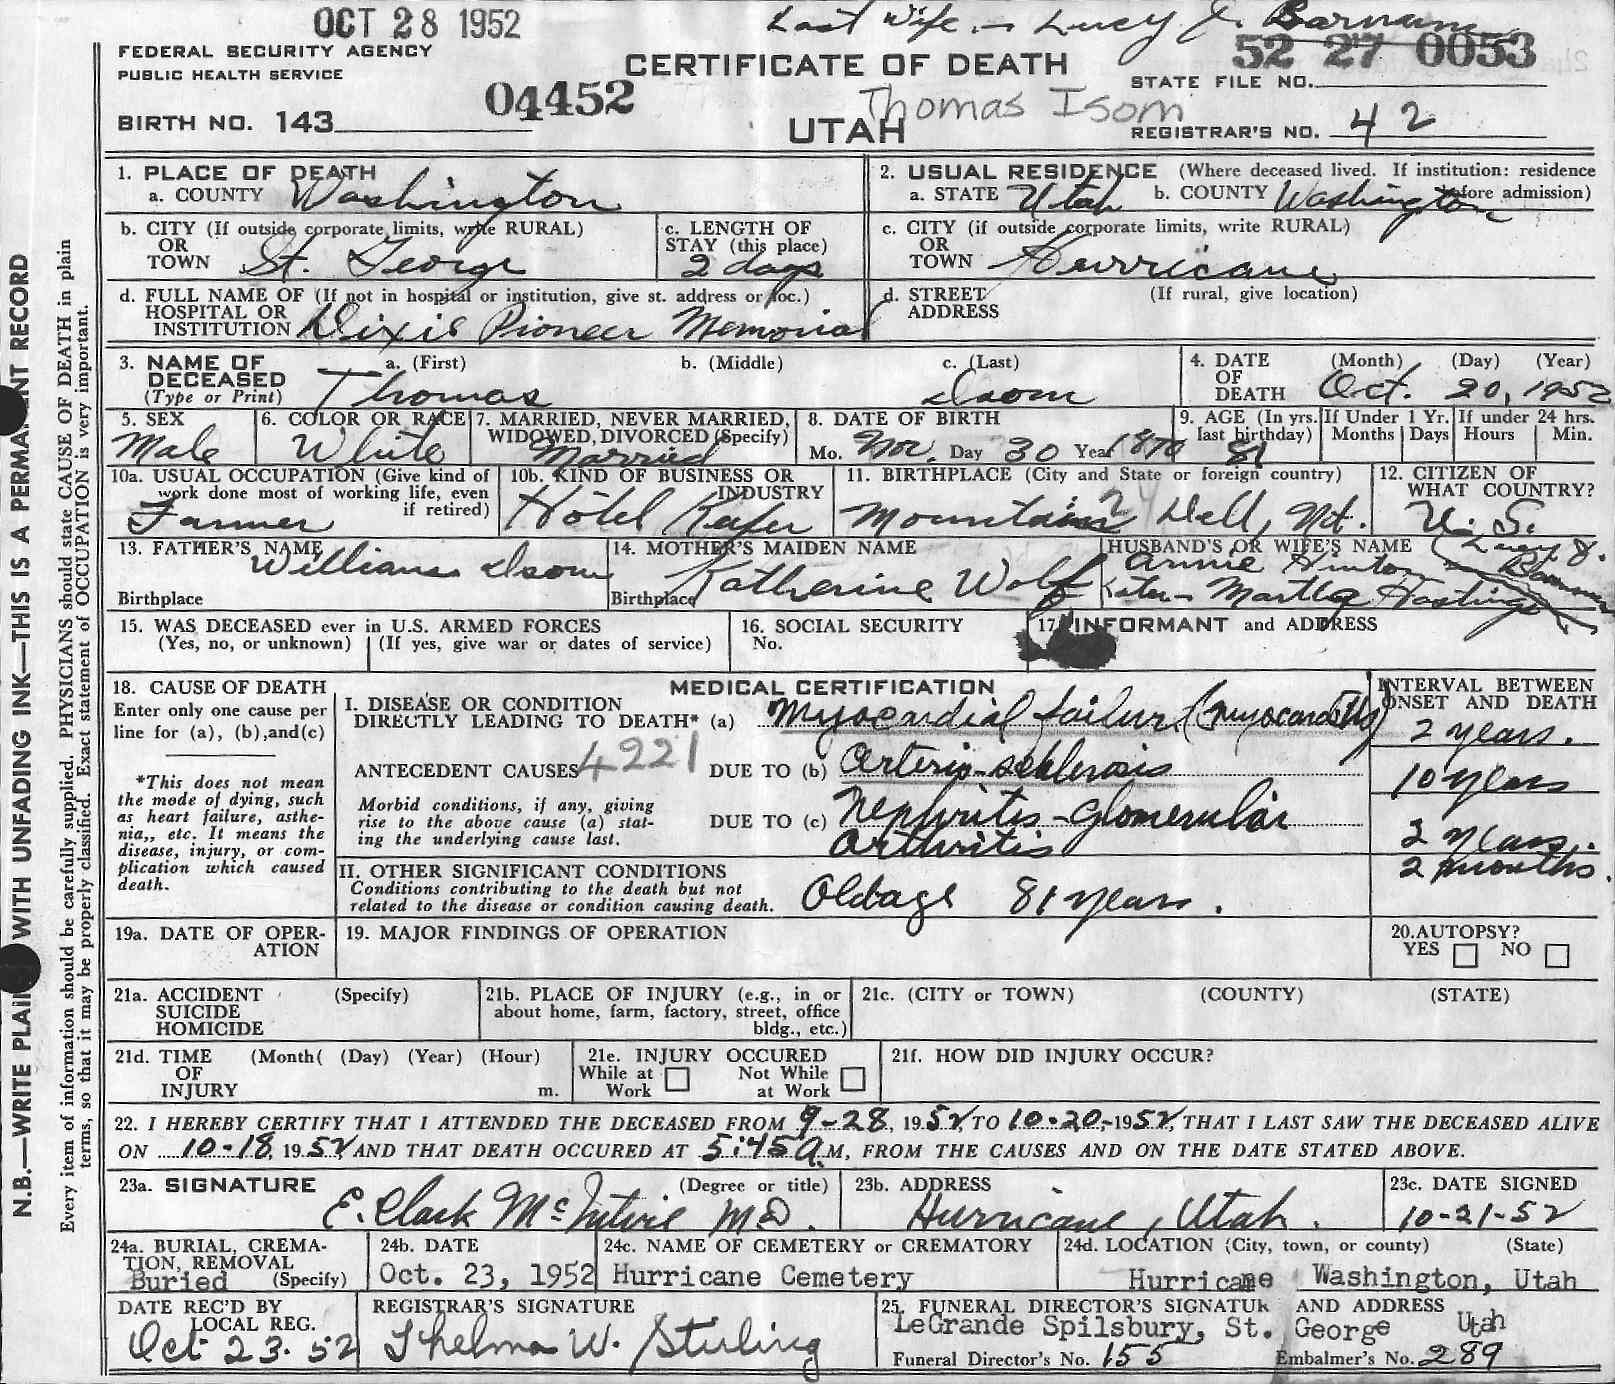 OCT 28 1952
Last Wife - Lucy J. Barnum
FEDERAL SECURITY AGENCY
PUBLIC HEALTH SERVICE
CERTIFICATE OF DEATH
52 27 0053
STATE FILE NO.
04452
Thomas Isom
BIRTH NO. 143
UTAH
REGISTRAR'S NO. 42
1. PLACE OF DEATH
a. COUNTY Washington
2. USUAL RESIDENCE (Where deceased lived. If institution: residence before admission)
a. STATE Utah b. COUNTY Washington
b. CITY (If outside corporate limits, write RURAL)
OR
TOWN St. George
c. LENGTH OF
STAY (this place)
2 days
c. CITY (if outside corporate limits, write RURAL)
OR
TOWN Hurricane
d. FULL NAME OF (If not in hospital or institution, give st. address or loc.)
HOSPITAL OR
INSTITUTION Dixie Pioneer Memorial
d. STREET (If rural, give location)
ADDRESS
3. NAME OF DECEASED (Type or Print)
a. (First) b. (Middle) c. (Last)
Thomas Isom
4. DATE OF DEATH (Month) (Day) (Year)
Oct. 20, 1952
5. SEX
Male
6. COLOR OR RACE
White
7. MARRIED, NEVER MARRIED,
WIDOWED, DIVORCED (Specify)
Married
8. DATE OF BIRTH
Mo. Nov. Day 30 Year 1870
9. AGE (In yrs. last birthday)
81
If Under 1 Yr. If under 24 hrs.
Months Days Hours Min.
10a. USUAL OCCUPATION (Give kind of
work done most of working life, even
if retired)
Farmer
10b. KIND OF BUSINESS OR
INDUSTRY
Hotel
11. BIRTHPLACE (City and State or foreign country)
Mountain Dell, Ut.
12. CITIZEN OF
WHAT COUNTRY?
U. S.
13. FATHER'S NAME
William Isom
Birthplace
14. MOTHER'S MAIDEN NAME
Katherine Wolf
Birthplace
HUSBAND'S OR WIFE'S NAME
Annie Hinton
Martha Hastings
15. WAS DECEASED ever in U.S. ARMED FORCES
(Yes, no, or unknown) (If yes, give war or dates of service)
16. SOCIAL SECURITY
No.
17. INFORMANT and ADDRESS
18. CAUSE OF DEATH
Enter only one cause per
line for (a), (b),and(c)
*This does not mean
the mode of dying, such
as heart failure, asthe-
nia,, etc. It means the
disease, injury, or com-
plication which caused
death.
MEDICAL CERTIFICATION
I. DISEASE OR CONDITION
DIRECTLY LEADING TO DEATH* (a) Myocardial failure (myocarditis)
INTERVAL BETWEEN
ONSET AND DEATH
2 years.
ANTECEDENT CAUSES 4221 DUE TO (b) Arterio-schlerosis
10 years
Morbid conditions, if any, giving
rise to the above cause (a) stat-
ing the underlying cause last.
DUE TO (c) Nephritis-Glomerular
2 years.
Arthritis
2 months.
II. OTHER SIGNIFICANT CONDITIONS
Conditions contributing to the death but not
related to the disease or condition causing death.
Oldage 81 years.
19a. DATE OF OPER-
ATION
19. MAJOR FINDINGS OF OPERATION
20. AUTOPSY?
YES NO
21a. ACCIDENT (Specify)
SUICIDE
HOMICIDE
21b. PLACE OF INJURY (e.g., in or
about home, farm, factory, street, office
bldg., etc.)
21c. (CITY or TOWN) (COUNTY) (STATE)
21d. TIME (Month( (Day) (Year) (Hour)
OF
INJURY m.
21e. INJURY OCCURED
While at Work Not While at Work
21f. HOW DID INJURY OCCUR?
22. I HEREBY CERTIFY THAT I ATTENDED THE DECEASED FROM 9-28, 1952, TO 10-20,-1952, THAT I LAST SAW THE DECEASED ALIVE
ON 10-18, 1952, AND THAT DEATH OCCURED AT 5:45 A.M, FROM THE CAUSES AND ON THE DATE STATED ABOVE.
23a. SIGNATURE (Degree or title)
E. Clark McIntire MD.
23b. ADDRESS
Hurricane, Utah.
23c. DATE SIGNED
10-21-52
24a. BURIAL, CREMA-
TION, REMOVAL
Buried (Specify)
24b. DATE
Oct. 23, 1952
24c. NAME OF CEMETERY or CREMATORY
Hurricane Cemetery
24d. LOCATION (City, town, or county) (State)
Hurricane Washington, Utah
DATE REC'D BY
LOCAL REG.
Oct 23. 52
REGISTRAR'S SIGNATURE
Thelma W. Stirling
25. FUNERAL DIRECTOR'S SIGNATUR AND ADDRESS
LeGrande Spilsbury, St. George Utah
Funeral Director's No. 155 Embalmer's No. 289
N.B.—WRITE PLAINLY WITH UNFADING INK—THIS IS A PERMANENT RECORD
Every item of information should be carefully supplied. PHYSICIANS should state CAUSE OF DEATH in plain
terms, so that it may be properly classified. Exact statement of OCCUPATION is very important.